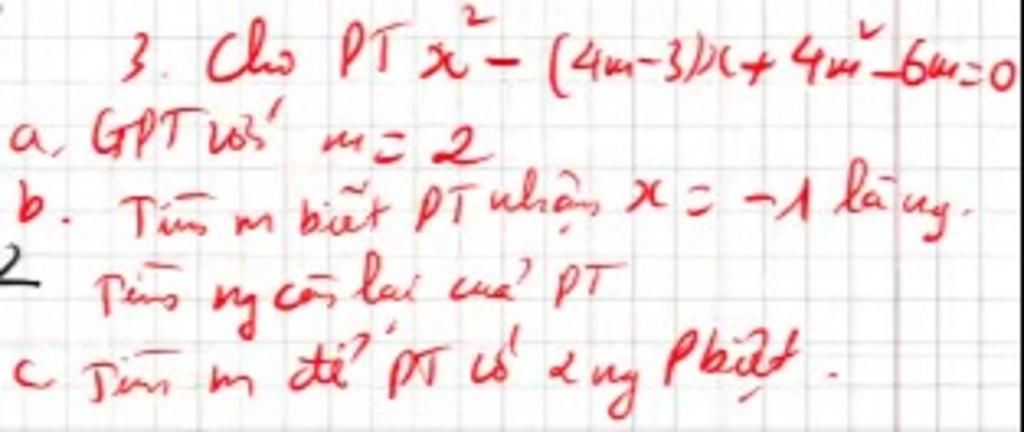 3. Cho PT x² - (4m-3)x + 4m² - 6m = 0
a. GPT với m = 2
b. Tìm m biết PT nhận x = -1 là ng.
2
Tìm ng còn lại của PT
c. Tìm m để PT có 2 ng Pbiệt.